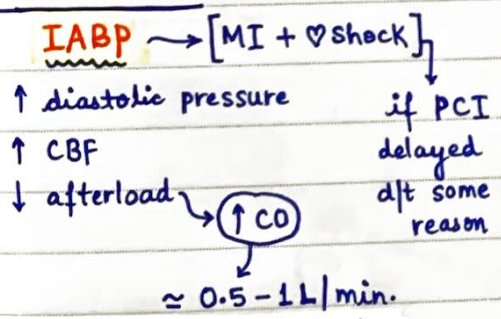 IABP → [MI + ♡ Shock]
↑ diastolic pressure
↑ CBF
↓ afterload
↑ CO
≃ 0.5 - 1 L/min.
if PCI
delayed
d/t some
reason